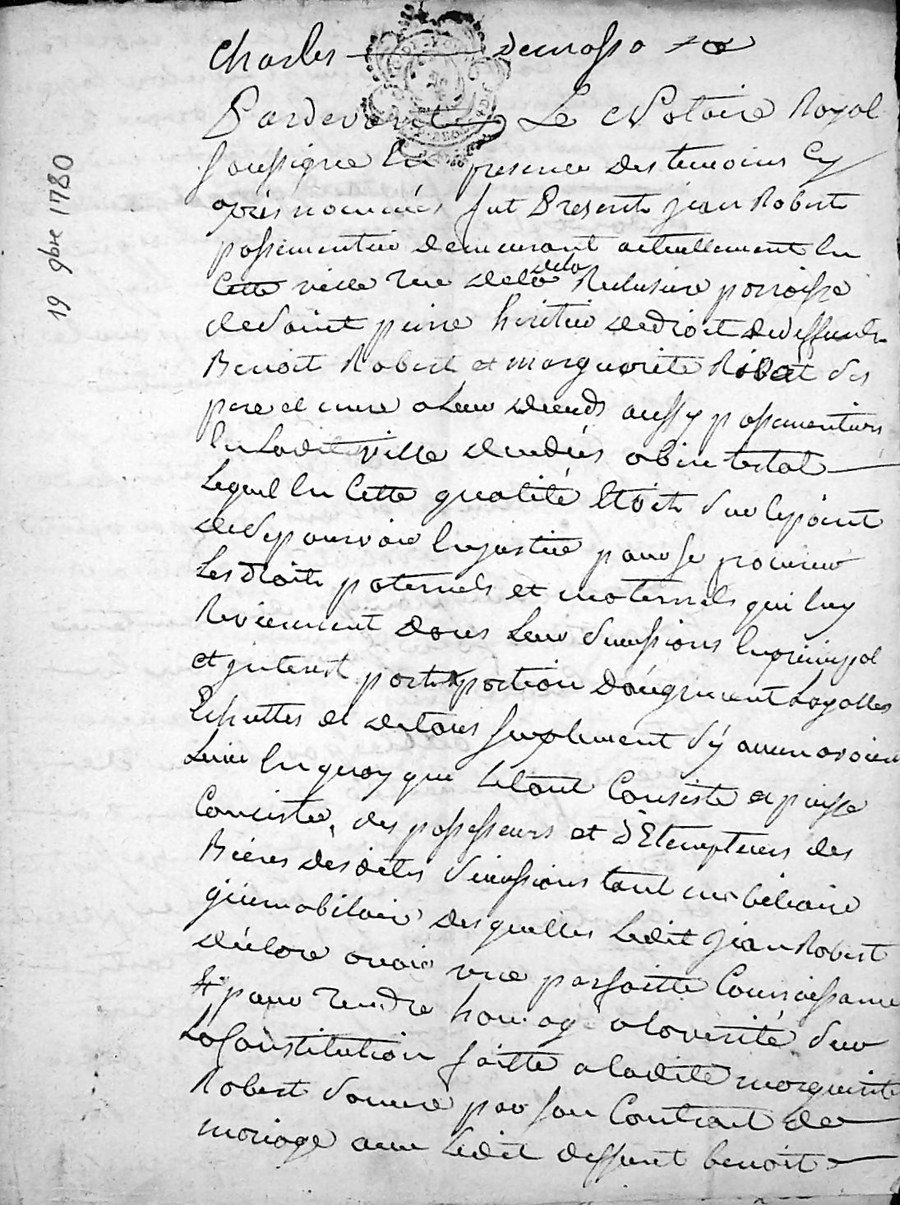 19 9bre 1780
Charles demosso
Pardevant Le Notaire Royal
soussigné En presence des temoins Cy
apres nommés fut Present jean Robert
passementier demeurant actuellement En
Cette ville rue dela dela paroisse
de Saint pierre heritier de droit de deffunts
Benoit Robert et marguerite Robert Ses
pere et mere a Leur deceds aussy passementiers
En Ladite ville decedés abintestat
Lequel En Cette qualité Etoit Sur le point
de Se pourvoir En justice pour se procurer
Les droits paternels et maternels qui luy
Reviennent dans Leur Successions En principal
et interest part portion d'augment bagues
Echuttes et de tous suplement S'y aucun avoien
Lieu En quoy que le tout Consiste et puisse
Consister, des possesseurs et d'Etempteurs des
Biens des dites Successions tant mobiliaire
qu'immobiliair desquelles Ledit Jean Robert
declare avoir une parfaitte Connoissance
& pour rendre homage a la verité Sur
La Constitution faitte a ladite marguerite
Robert Sa mere par son Contract de
mariage avec Ledit deffunt benoit